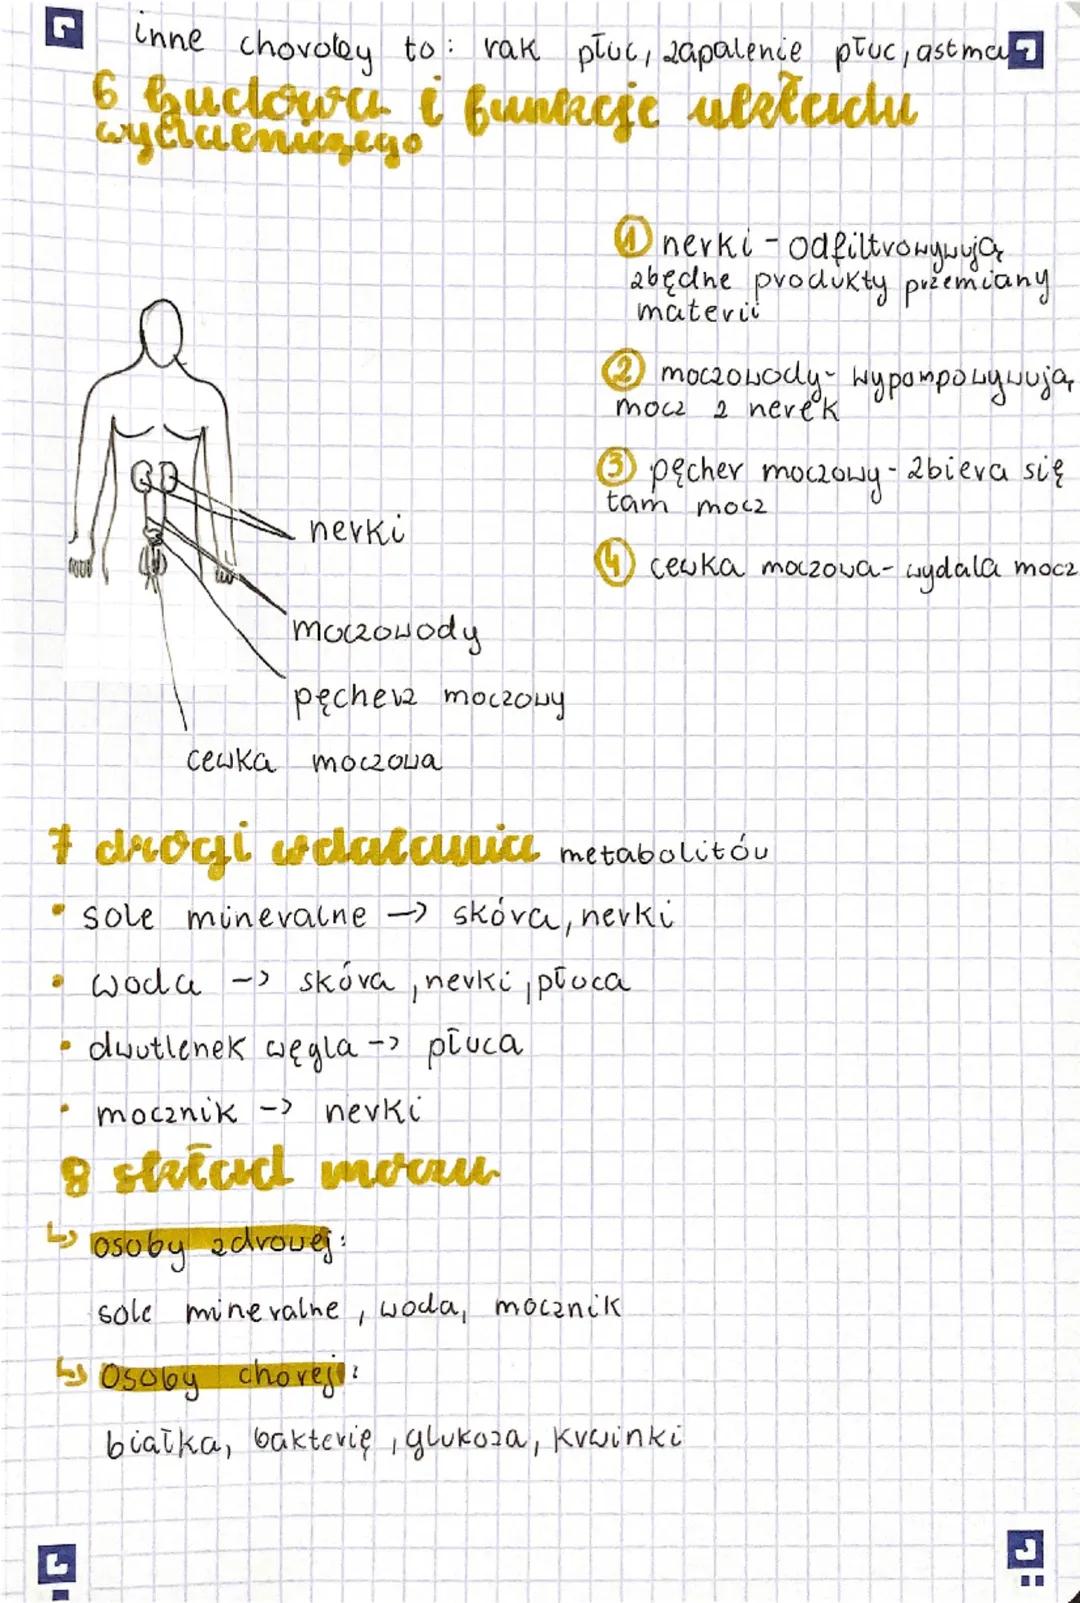 inne choroby to: rak płuc, zapalenie płuc, astma
6 budowa i funkcje układu
wydalniczego
1 nerki - odfiltrowywują
zbędne produkty przemiany
materii
2 moczowody - wypompowywują
mocz z nerek
3 pęcher moczowy - zbiera się
tam mocz
4 cewka moczowa - wydala mocz
nerki
moczowody
pęcherz moczowy
cewka moczowa
7 drogi wdalania metabolitów
• sole mineralne -> skóra, nerki
• woda -> skóra, nerki, płuca
• dwutlenek węgla -> płuca
• mocznik -> nerki
8 skład moczu
↳ osoby zdrowej:
sole mineralne, woda, mocznik
↳ osoby chorej:
białka, bakterię, glukoza, krwinki